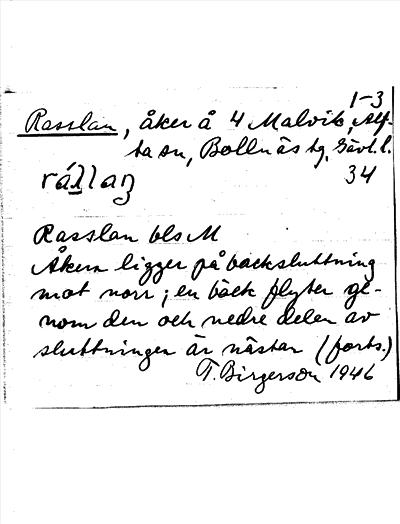 1-3
Rasslan, åker å 4 Malvik, Alf-
ta sn, Bollnäs tg, Gävl.l.
34
Rasslan bls M
Åkern ligger på backsluttning
mot norr; en bäck flyter ge-
nom den och nedre delen av
sluttningen är nästan (forts.)
T. Birgerson 1946